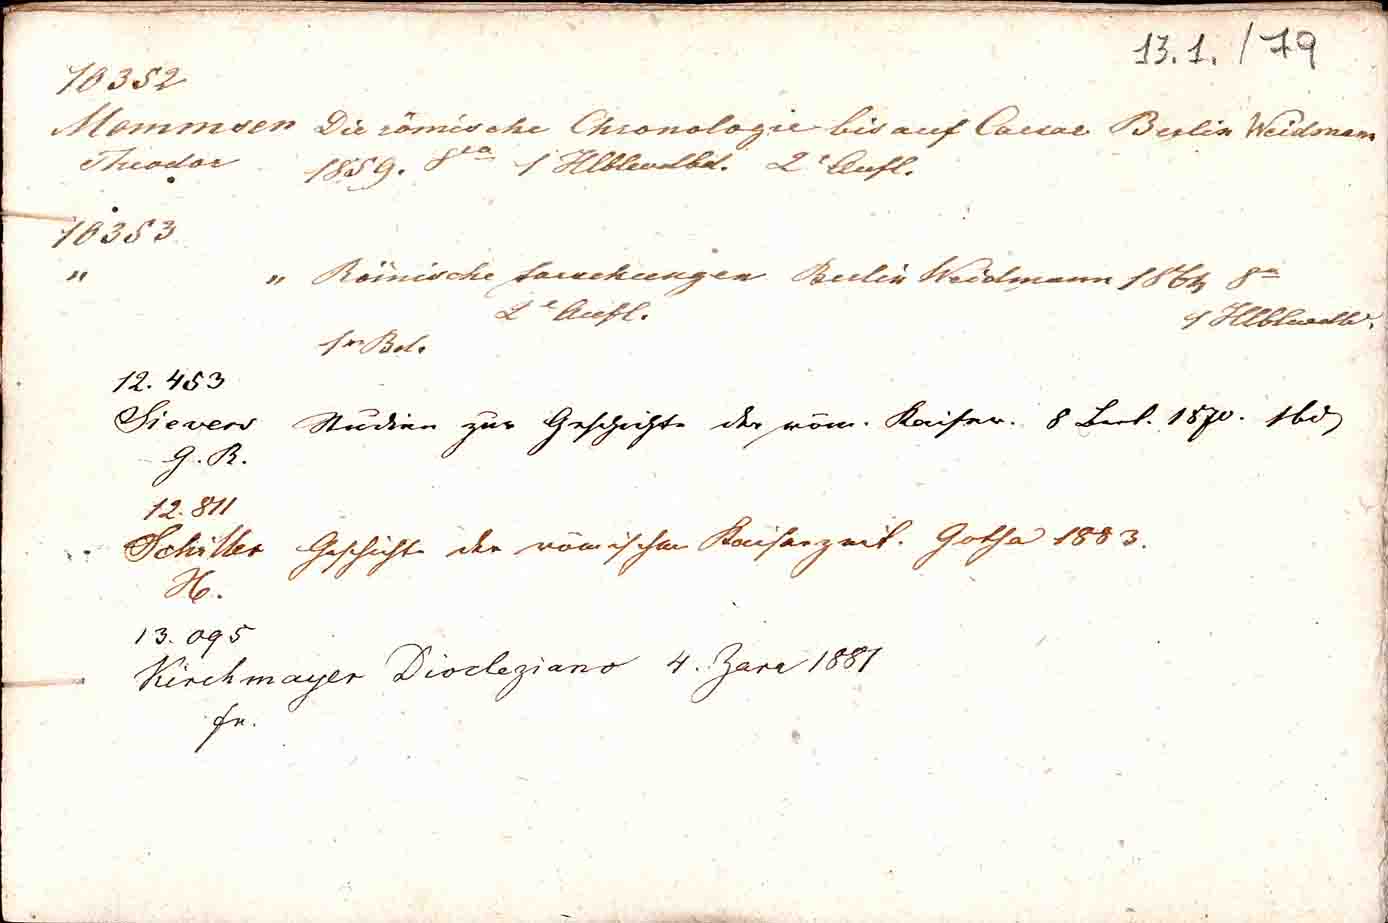 13.1. / 79
10352
Mommsen Die römische Chronologie bis auf Caesar Berlin Weidmann
Theodor 1859. 8va 1 Hlblwdbd. 2e Aufl.
10353
" " Römische Forschungen Berlin Weidmann 1864 8a
2e Aufl. 1 Hlblwdb.
1r Bd.
12.453
Sievers Studien zur Geschichte der röm. Kaiser. 8 Berl. 1870. 1 bd
G. R.
12.811
Schiller Geschichte der römischen Kaiserzeit. Gotha 1883.
H.
13.095
Kirchmayer Diocleziano 4. Zara 1881
fr.